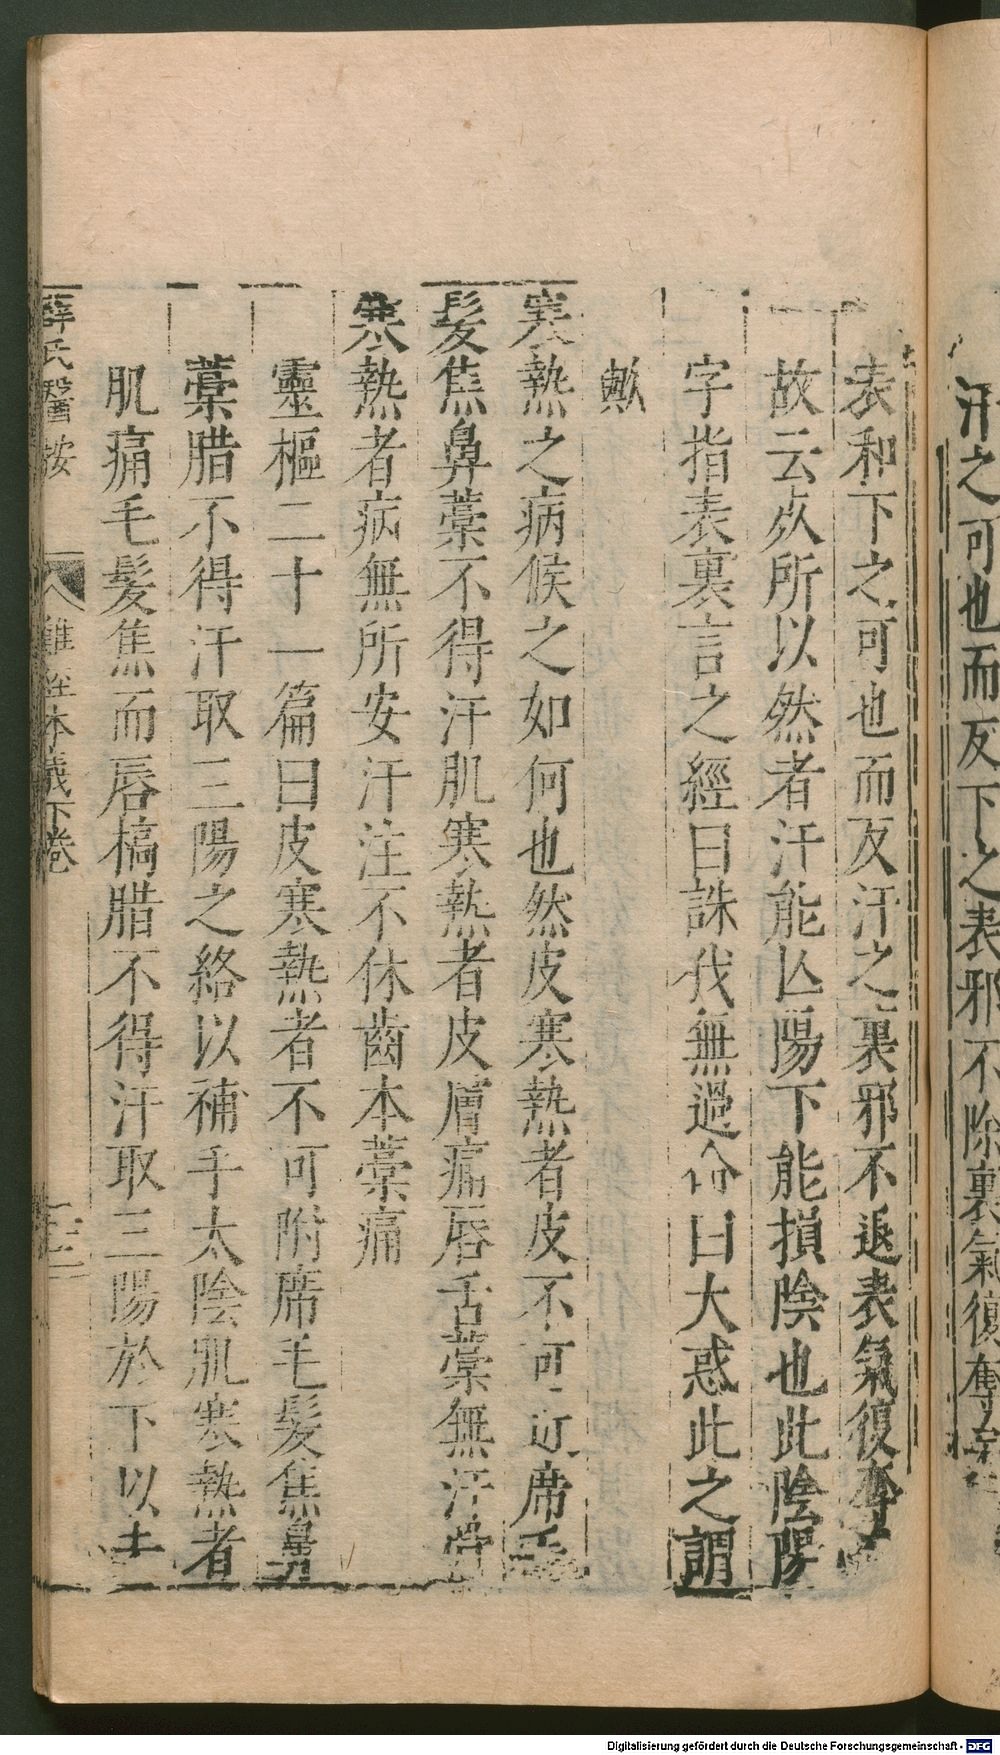 汗之可也而反下之表邪不除裏氣復奪
表和下之可也而反汗之裏邪不退表氣復奪
故云然所以然者汗能亡陽下能損陰也此陰陽
字指表裏言之經曰誅伐無過命曰大惑此之謂
歟
寒熱之病候之如何也然皮寒熱者皮不可近席毛
髮焦鼻藁不得汗肌寒熱者皮膚痛唇舌藁無汗骨
寒熱者病無所安汗注不休齒本藁痛
靈樞二十一篇曰皮寒熱者不可附席毛髮焦鼻
藁腊不得汗取三陽之絡以補手太陰肌寒熱者
肌痛毛髮焦而唇槁腊不得汗取三陽於下以去
薛氏醫按 難經本義下卷
Digitalisierung gefördert durch die Deutsche Forschungsgemeinschaft - DFG